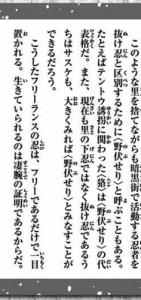 このような里を捨てながらも暗黒街で活動する忍者を
抜け忍と区別するために〈野伏せり〉と呼ぶこともある。
たとえばテントウ誘拐に関わった〈殆〉は〈野伏せり〉の代
表格だ。また、現在も里の下忍ではなく抜け忍であるう
ちはサスケも、大きくみれば〈野伏せり〉とみなすことが
できるだろう。
こうしたフリーランスの忍は、フリーであるだけで一目
置かれる。生きていられるのは凄腕の証明であるからだ。